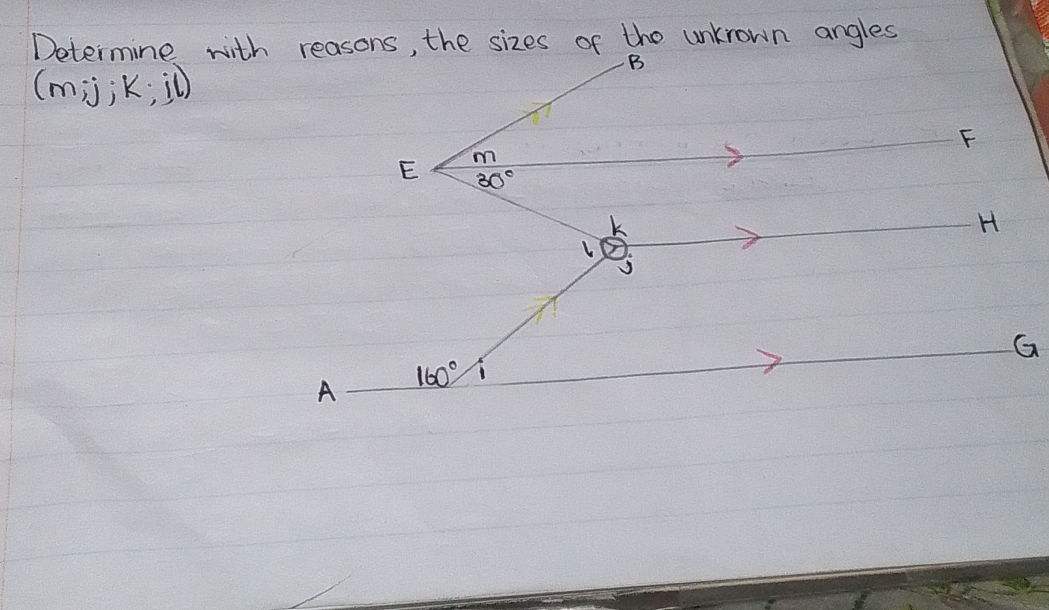 Determine with reasons, the sizes of the unknown angles
(m;j;K;jl)
B
m
F
E
30°
k
H
l
j
160°
i
G
A